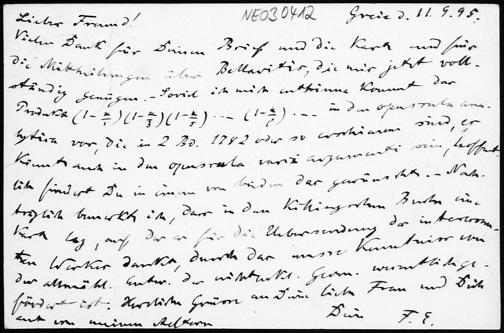 NEO30412
Lieber Freund! Greiz d. 11.9.95.
Vielen Dank für Deinen Brief und die Karte und für
die Mittheilungen über Bellavitis, die mir jetzt voll-
ständig genügen. – Soviel ich mich entsinne kommt das
Produkt in den opuscula ana-
lytica vor, die in 2 Bd. 1782 oder so erschienen sind, es
könnte auch in den opuscula varii argumenti sein, hoffent
lich findest Du in einem von beiden das gewünschte. – Nach-
träglich bemerkte ich, dass in dem Buche eine
Karte lag, auf der er für die Uebersendung der
ten Werke dankt, durch das unsre Kenntniss von
der allmähl. Entw. der nichteukl. Geom. wesentlich ge-
fördert ist. Herzliche Grüsse an Deine liebe Frau und Dich
auch von meinen Aeltern Dein F. E.